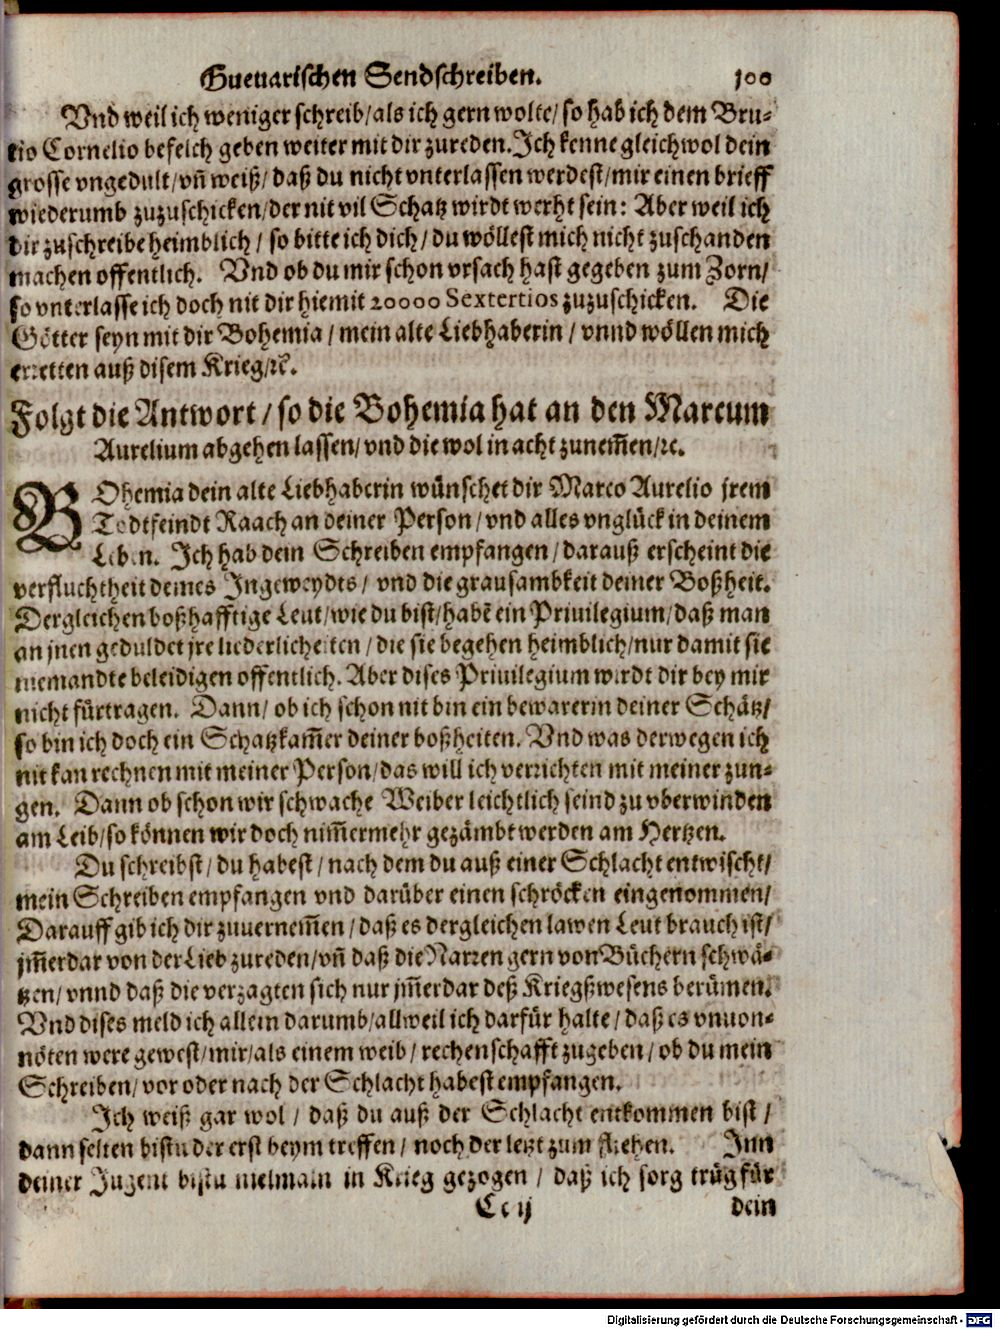 Gueuarischen Sendschreiben. 100
Vnd weil ich weniger schreib/als ich gern wolte/so hab ich dem Bru-
tio Cornelio befelch geben weiter mit dir zureden. Ich kenne gleichwol dein
grosse vngedult/vñ weiß/daß du nicht vnterlassen werdest/mir einen brieff
wiederumb zuzuschicken/der nit vil Schatz wirdt werht sein: Aber weil ich
dir zuschreibe heimblich/so bitte ich dich/du wöllest mich nicht zuschanden
machen offentlich. Vnd ob du mir schon vrsach hast gegeben zum Zorn/
so vnterlasse ich doch nit dir hiemit 20000 Sextertios zuzuschicken. Die
Götter seyn mit dir Bohemia/mein alte Liebhaberin/vnnd wöllen mich
erretten auß disem Krieg/ꝛc.
Folgt die Antwort/so die Bohemia hat an den Marcum
Aurelium abgehen lassen/vnd die wol in acht zunem̃en/ꝛc.
BOhemia dein alte Liebhaberin wünschet dir Marco Aurelio jrem
Todtfeindt Raach an deiner Person/vnd alles vnglück in deinem
Leben. Ich hab dein Schreiben empfangen/darauß erscheint die
verfluchtheit deines Ingeweydts/vnd die grausambkeit deiner Boßheit.
Dergleichen boßhafftige Leut/wie du bist/habẽ ein Priuilegium/daß man
an jnen geduldet jre liederlicheiten/die sie begehen heimblich/nur damit sie
niemandte beleidigen offentlich. Aber dises Priuilegium wirdt dir bey mir
nicht fürtragen. Dann/ob ich schon nit bin ein bewarerin deiner Schätz/
so bin ich doch ein Schatzkam̃er deiner boßheiten. Vnd was derwegen ich
nit kan rechnen mit meiner Person/das will ich verrichten mit meiner zun-
gen. Dann ob schon wir schwache Weiber leichtlich seind zu vberwinden
am Leib/so können wir doch nim̃ermehr gezämbt werden am Hertzen.
Du schreibst/du habest/nach dem du auß einer Schlacht entwischt/
mein Schreiben empfangen vnd darüber einen schröcken eingenommen/
Darauff gib ich dir zuuernem̃en/daß es dergleichen lawen Leut brauch ist/
jm̃erdar von der Lieb zureden/vñ daß die Narren gern von Büchern schwä-
tzen/vnnd daß die verzagten sich nur jm̃erdar deß Kriegßwesens berümen.
Vnd dises meld ich allein darumb/allweil ich darfür halte/daß es vnuon-
nöten were gewest/mir/als einem weib/rechenschafft zugeben/ob du mein
Schreiben/vor oder nach der Schlacht habest empfangen.
Ich weiß gar wol/daß du auß der Schlacht entkommen bist/
dann selten bistu der erst beym treffen/noch der letzt zum fliehen. Inn
deiner Jugent bistu nielmaln in Krieg gezogen/daß ich sorg trüg für
Cc ij dein
Digitalisierung gefördert durch die Deutsche Forschungsgemeinschaft - DFG